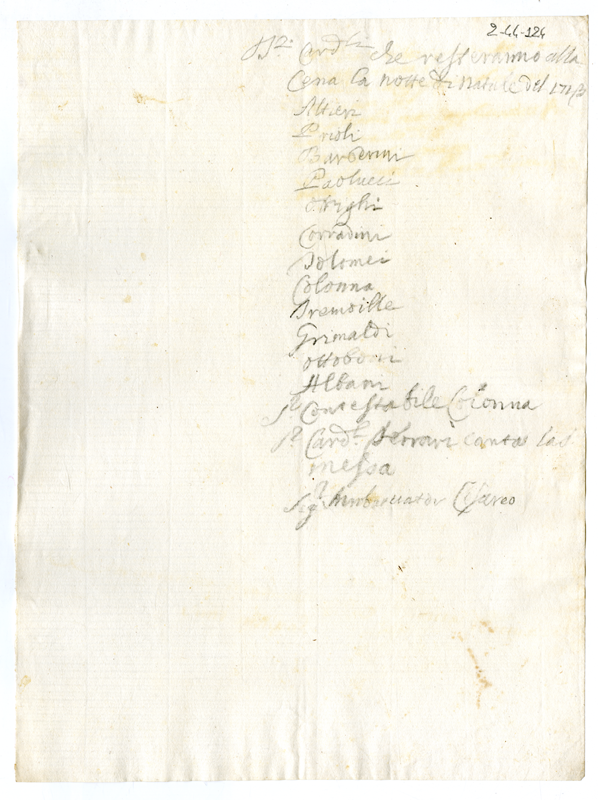 2-44-124
Card.li che resteranno alla
Cena la notte di Natale del 1713
Altieri
Prioli
Barberini
Paolucci
Orighi
Corradini
Tolomei
Colonna
Tremoille
Grimaldi
Ottoboni
Albani
S.r Contestabile Colonna
S.r Card.l Ferrari canta la
messa
Sig.r Ambasciator Cesareo